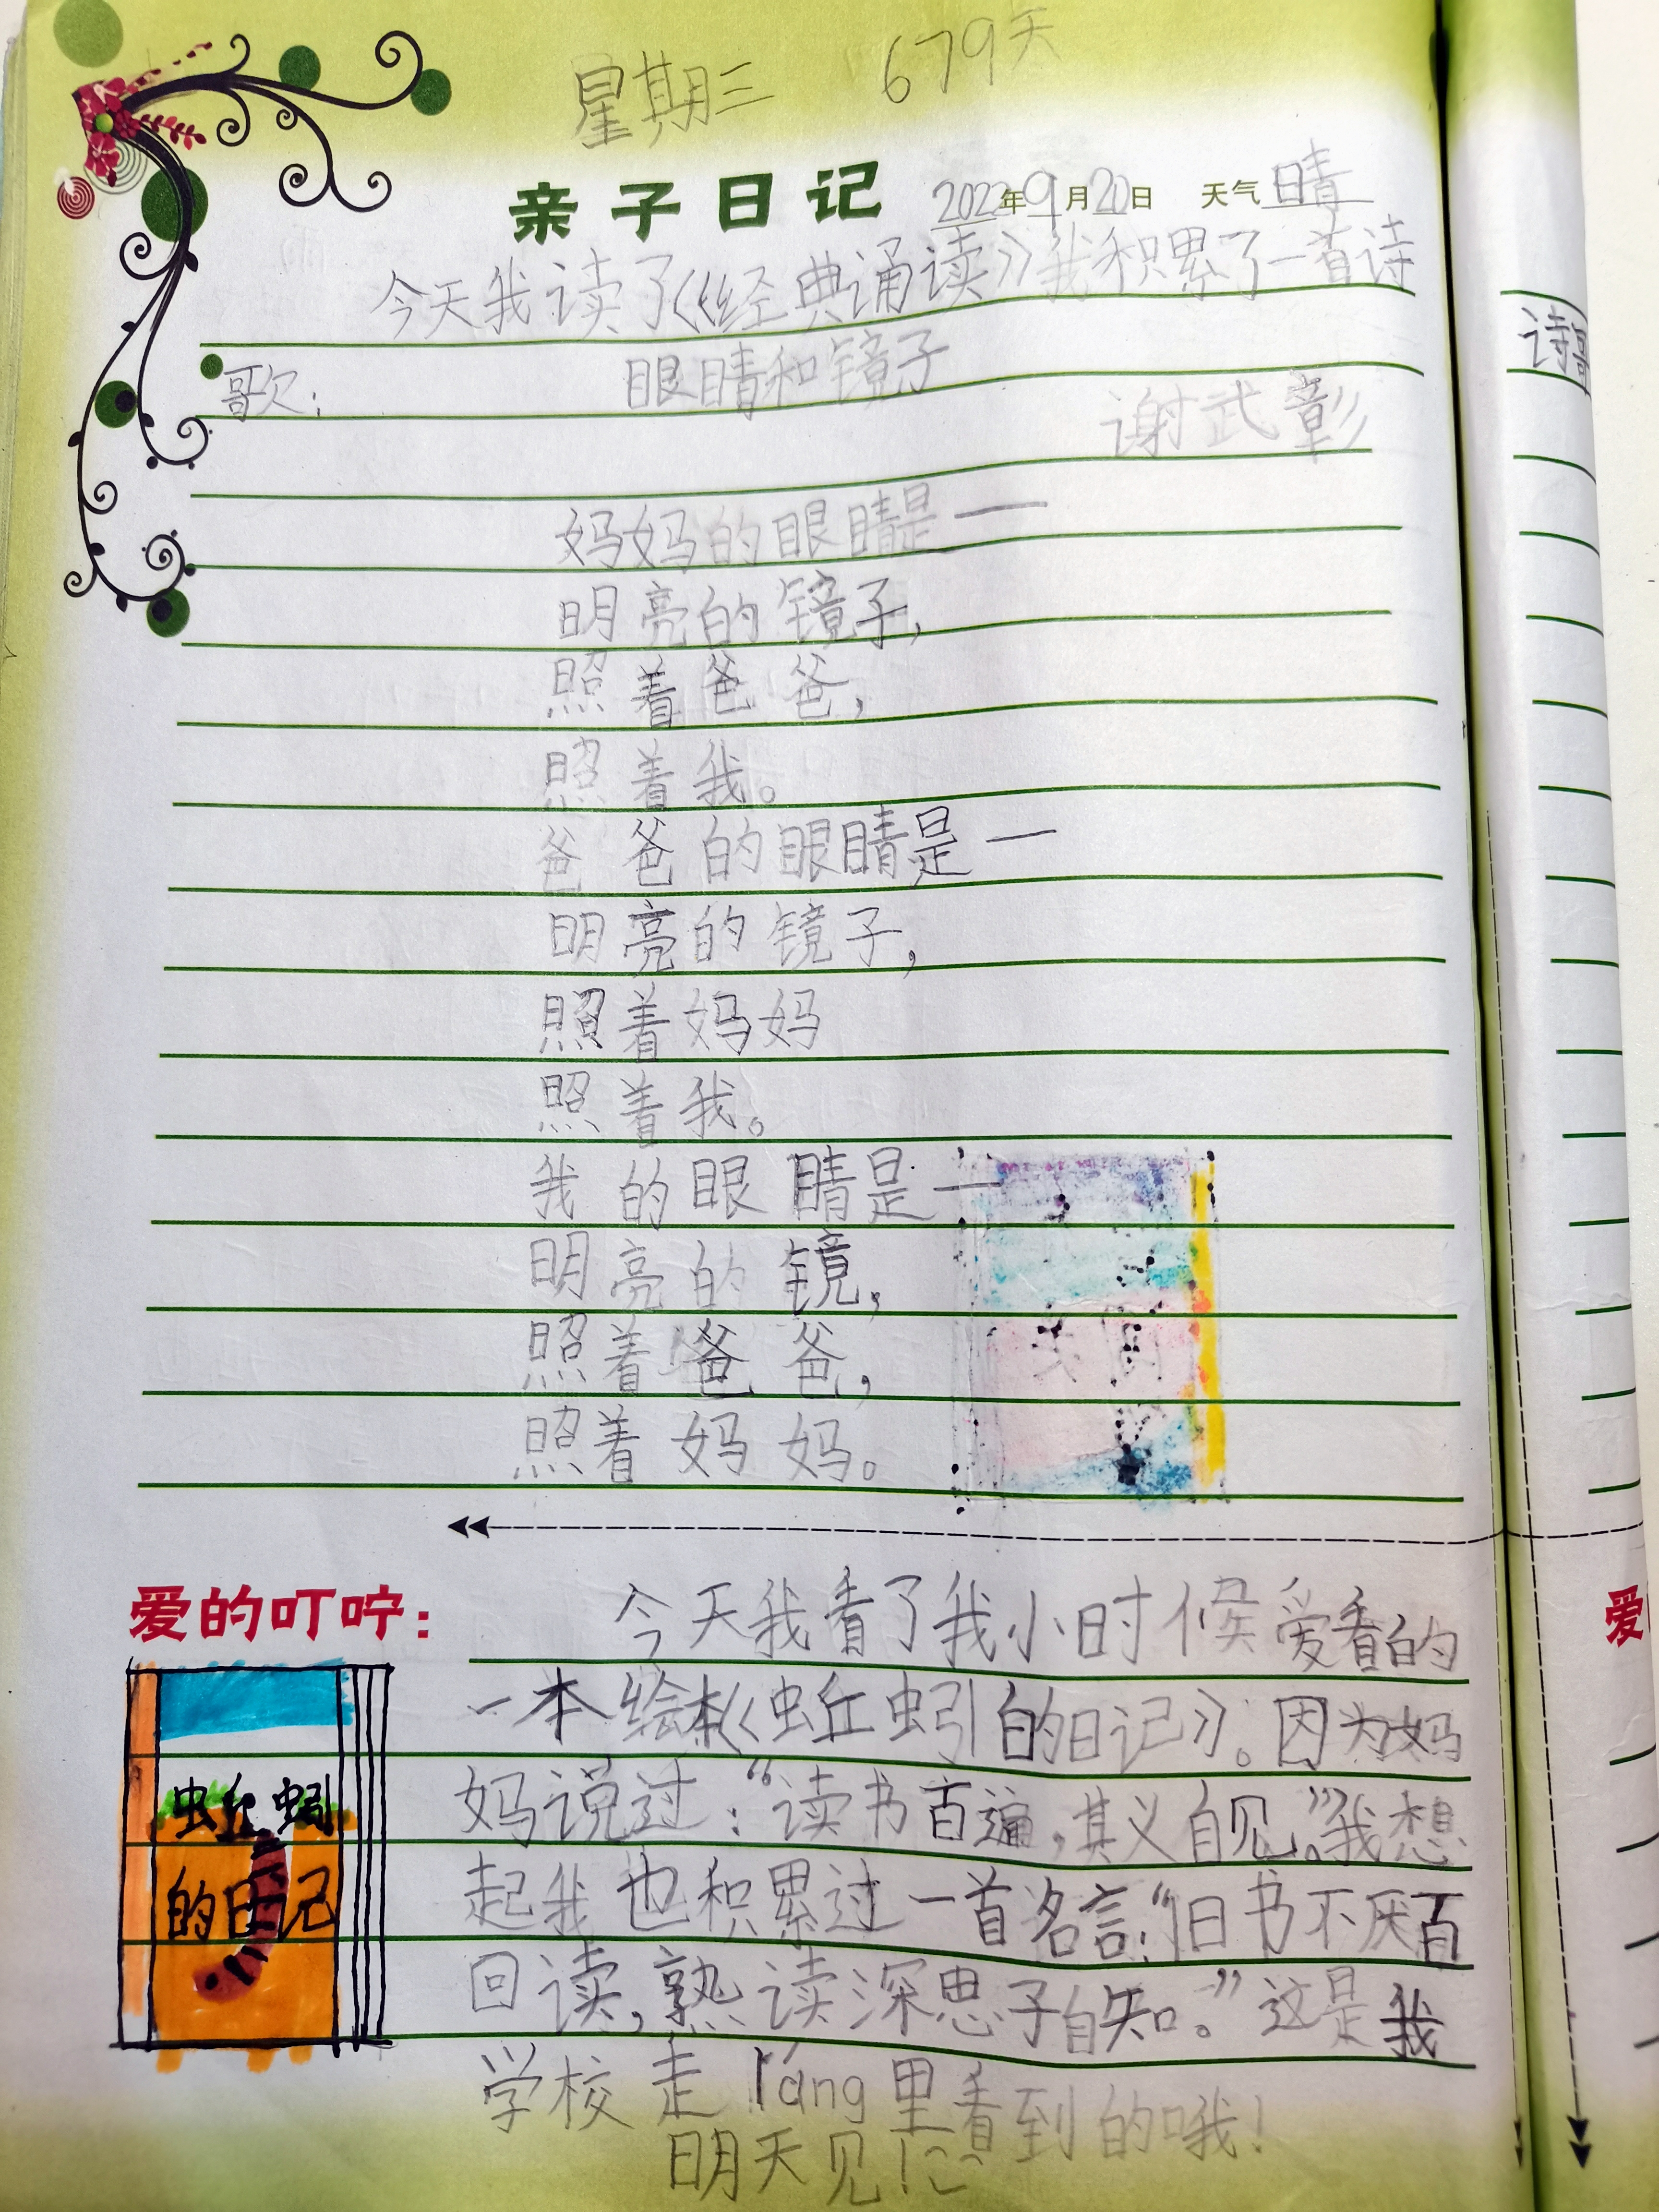 星期三 679天
亲子日记 2022年9月20日 天气 晴
今天我读了《经典诵读》我积累了一首诗
歌： 眼睛和镜子
谢武彰
妈妈的眼睛是——
明亮的镜子，
照着爸爸，
照着我。
爸爸的眼睛是——
明亮的镜子，
照着妈妈
照着我。
我的眼睛是——
明亮的镜，
照着爸爸，
照着妈妈。
爱的叮咛：
今天我看了我小时候爱看的
一本绘本《蚯蚓的日记》。因为妈
妈说过：“读书百遍，其义自见。”我想
起我也积累过一首名言：“旧书不厌百
回读，熟读深思子自知。”这是我
学校走láng里看到的哦！
明天见！
蚯蚓
的日记
诗
爱